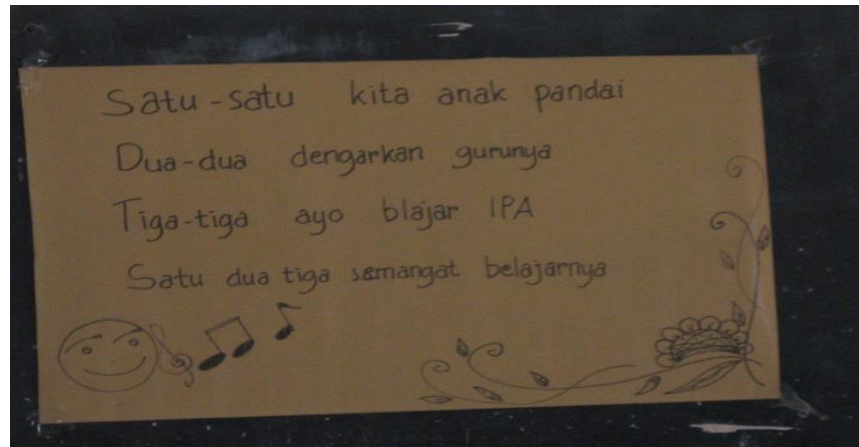 Satu-satu kita anak pandai
Dua-dua dengarkan gurunya
Tiga-tiga ayo blajar IPA
Satu dua tiga semangat belajarnya